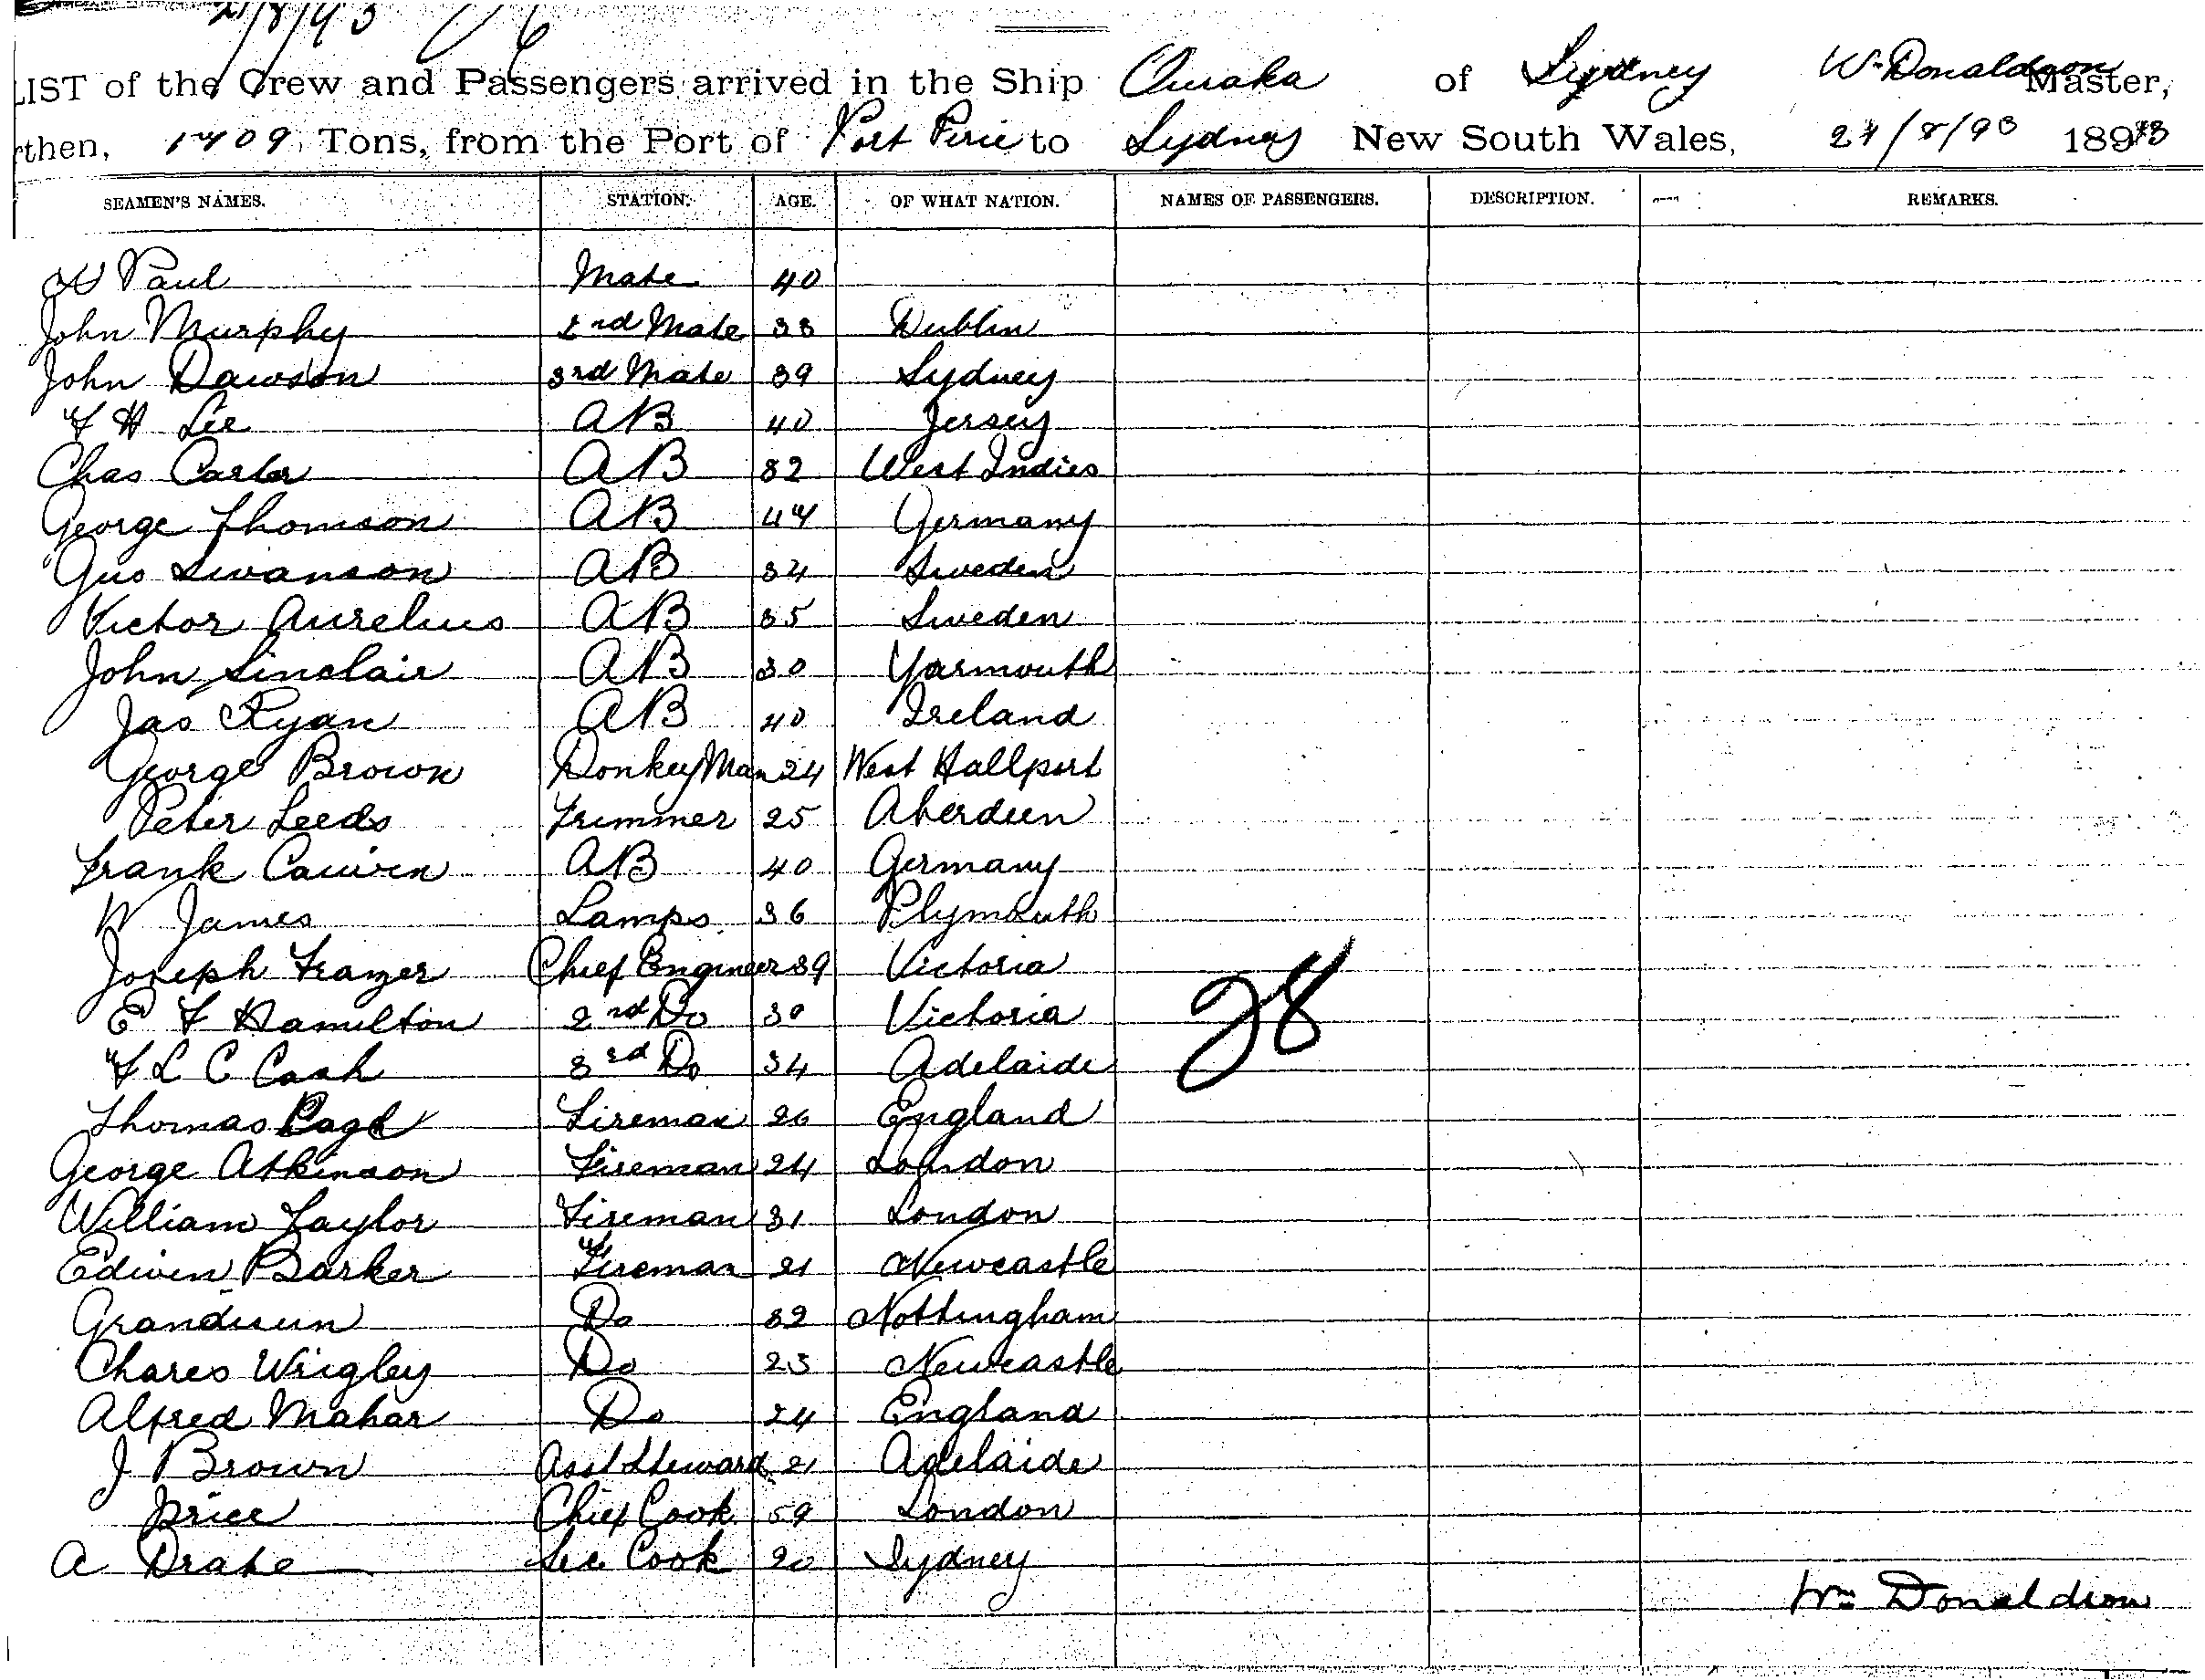 21/8/93
LIST of the Crew and Passengers arrived in the Ship Ouraka of Sydney W. Donaldson Master,
then, 1409 Tons, from the Port of Port Pirie to Sydney New South Wales, 21/8/93 1893
SEAMEN'S NAMES. STATION. AGE. OF WHAT NATION. NAMES OF PASSENGERS. DESCRIPTION. REMARKS.
Paul Mate 40
John Murphy 2nd Mate 33 Dublin
John Dawson 3rd Mate 39 Sydney
F H Lee AB 40 Jersey
Chas Carter AB 32 West Indies
George Thomson AB 44 Germany
Gus Swanson AB 34 Sweden
Victor Aurelius AB 35 Sweden
John Sinclair AB 30 Yarmouth
Jas Ryan AB 40 Ireland
George Brown Donkey Man 24 West Hallport
Peter Leeds Trimmer 25 Aberdeen
Frank AB 40 Germany
W James Lamps 36 Plymouth
Joseph Frazer Chief Engineer 39 Victoria
E F Hamilton 2nd Do 30 Victoria
F L C Cash 3rd Do 34 Adelaide
Thomas Page Fireman 26 England
George Atkinson Fireman 24 London
William Taylor Fireman 31 London
Edwin Barker Fireman 21 Newcastle
Do 32 Nottingham
Chares Wrigley Do 23 Newcastle
Alfred Mahar Do 24 England
J Brown Asst Steward 21 Adelaide
Price Chief Cook 59 London
A Drake Sec Cook 20 Sydney
28
Wm Donaldson